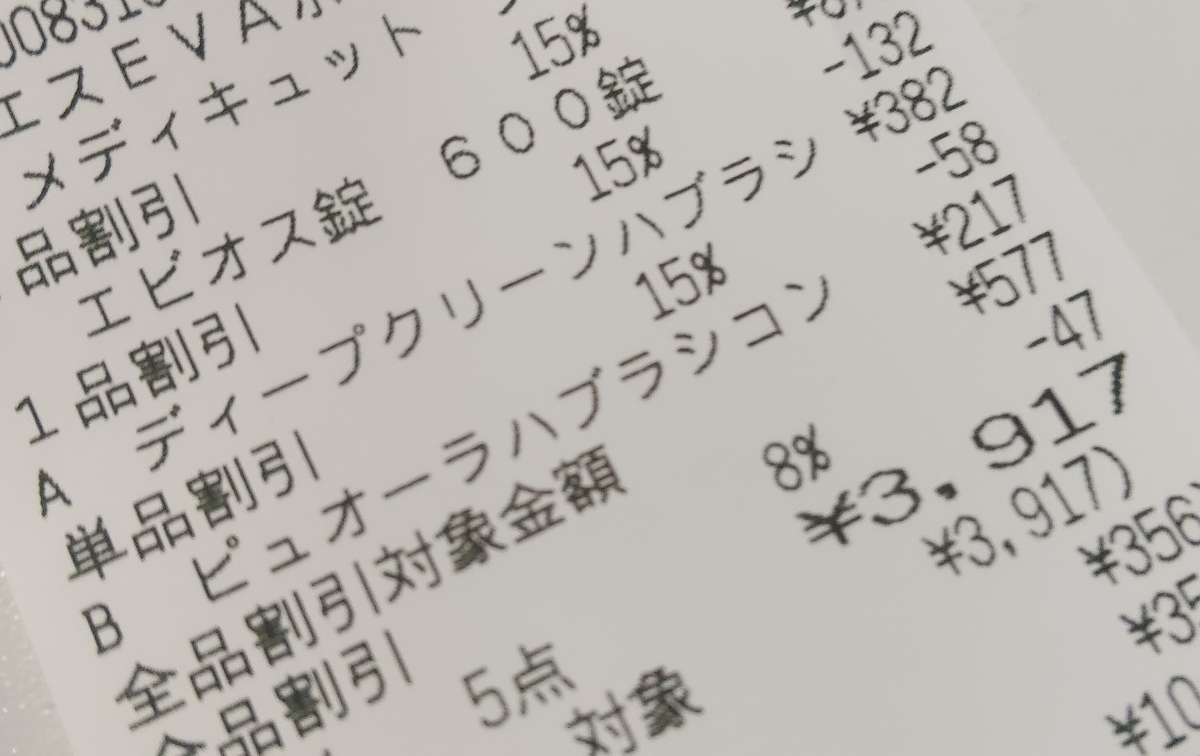 エスEVA
メディキュット
品割引 15%
エビオス錠 600錠
1品割引 15% -132
A ディープクリーンハブラシ ¥382
単品割引 15% -58
B ピュオーラハブラシコン ¥217
全品割引対象金額 ¥577
全品割引 8% -47
5点 ¥3,917
対象 ¥3,917)
¥356
¥35
¥10